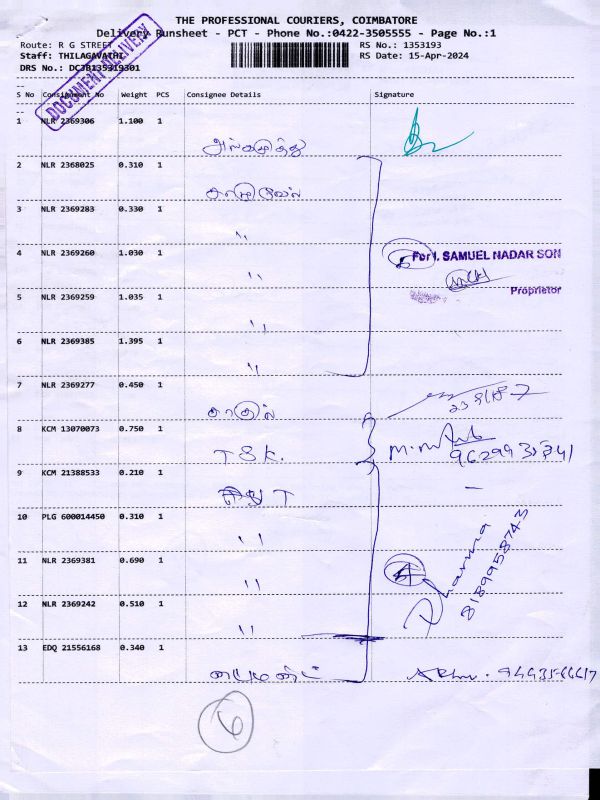 THE PROFESSIONAL COURIERS, COIMBATORE
Delivery Runsheet - PCT - Phone No.:0422-3505555 - Page No.:1
Route: R G STREET
RS No.: 1353193
Staff: THILAGAVATHI
RS Date: 15-Apr-2024
DRS No.: DCJB135319301
DOCUMENT DELIVERY
S No Consignment No Weight PCS Consignee Details Signature
1 NLR 2369306 1.100 1
2 NLR 2368025 0.310 1
3 NLR 2369283 0.330 1 "
4 NLR 2369260 1.030 1 "
For I. SAMUEL NADAR SON
Proprietor
5 NLR 2369259 1.035 1 "
6 NLR 2369385 1.395 1 "
7 NLR 2369277 0.450 1
8 KCM 13070073 0.750 1 T S K.
9 KCM 21388533 0.210 1 T —
10 PLG 600014450 0.310 1 "
11 NLR 2369381 0.690 1 "
Dharma
8189958743
12 NLR 2369242 0.510 1 "
13 EDQ 21556168 0.340 1
6